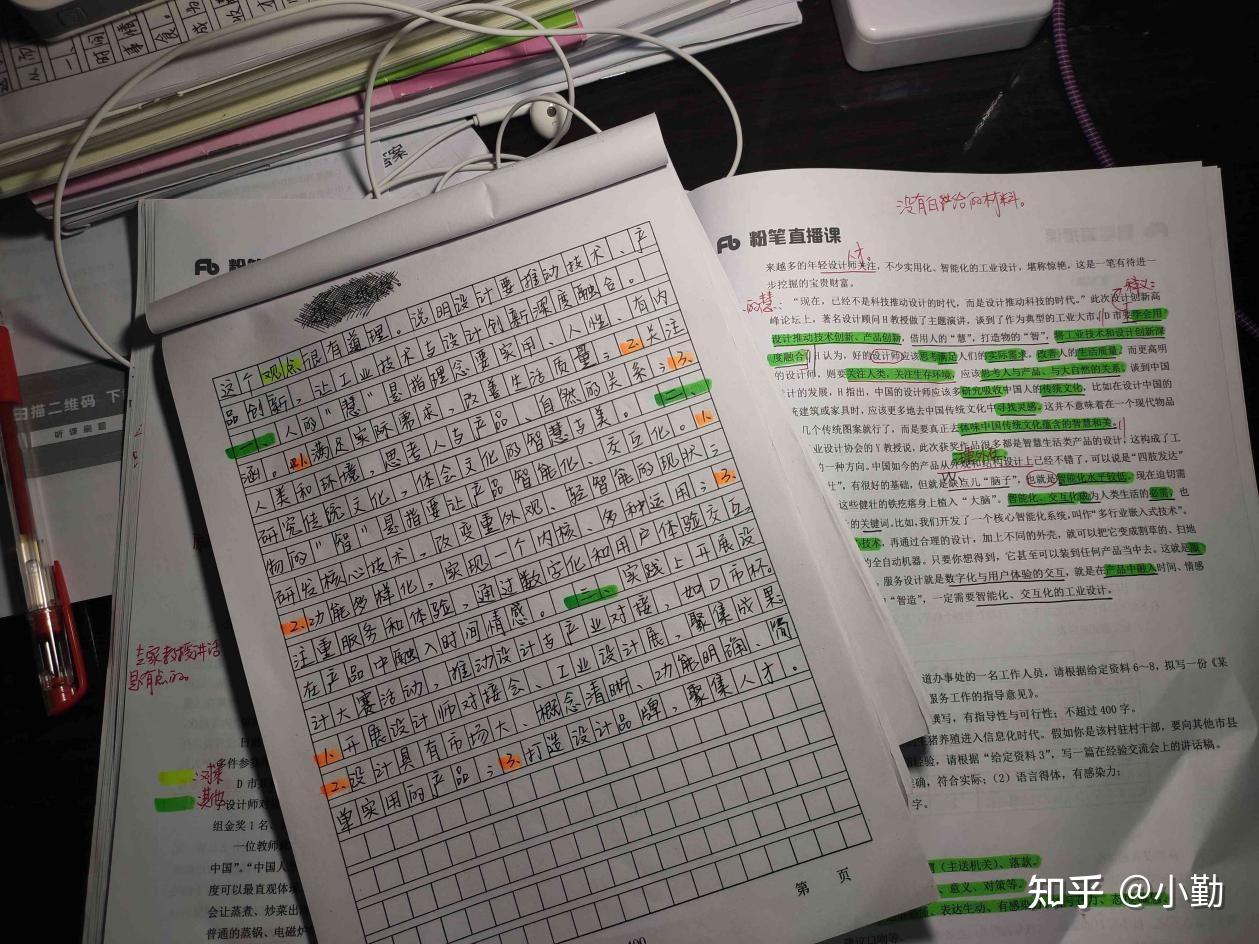 时间
事情
食
成
收
答案
没有白给的材料。
粉笔直播课
人才。
来越多的年轻设计师关注，不少实用化、智能化的工业设计，堪称惊艳，这是一笔有待进一
步挖掘的宝贵财富。
的慧：
“现在，已经不是科技推动设计的时代，而是设计推动科技的时代。”此次设计创新高
峰论坛上，著名设计顾问H教授做了主题演讲，谈到了作为典型的工业大市，D市要学会用
设计推动技术创新、产品创新，借用人的“慧”，打造物的“智”，将工业技术和设计创新深
度融合。H认为，好的设计师应该思考满足人们的实际需求，改善人的生活质量，而更高明
的设计师，则要关注人类、关注生存环境，应该思考人与产品、与大自然的关系。谈到中国
计的发展，H指出，中国的设计师应该多研究吸收中国人的传统文化，比如在设计中国的
统建筑或家具时，应该更多地去中国传统文化中寻找灵感。这并不意味着在一个现代物品
几个传统图案就行了，而是要真正去体味中国传统文化蕴含的智慧和美。
业设计协会的Y教授说，此次获奖作品很多都是智慧生活类产品的设计，这构成了工
的一种方向。中国如今的产品从外观和结构设计上已经不错了，可以说是“四肢发达”
壮”，有很好的基础，但就是缺点儿“脑子”，也就是智能化水平较低。现在迫切需
这些健壮的铁疙瘩身上植入“大脑”。智能化、交互化成为人类生活的必需，也
的关键词。比如，我们开发了一个核心智能化系统，叫作“多行业嵌入式技术”。
技术，再通过合理的设计，加上不同的外壳，就可以把它变成割草的、扫地
的全自动机器。只要你想得到，它甚至可以装到任何产品当中去。这就是服
，服务设计就是数字化与用户体验的交互，就是在产品中融入时间、情感
“智造”，一定需要智能化、交互化的工业设计。
道办事处的一名工作人员，请根据给定资料6～8，拟写一份《某
服务工作的指导意见》。
撰写，有指导性与可行性；不超过400字。
生猪养殖进入信息化时代。假如你是该村驻村干部，要向其他市县
经验，请根据“给定资料3”，写一篇在经验交流会上的讲话稿。
确，符合实际；（2）语言得体，有感染力；
字。
（主送机关）、落款。
、意义、对策等。
、表达生动、有感
这个观点很有道理。说明设计要推动技术、产
品创新，让工业技术与设计创新深度融合。
一、人的“慧”是指理念要实用、人性、有内
涵。1.满足实际需求，改善生活质量；2.关注
人类和环境，思考人与产品、自然的关系；3.
研究传统文化，体会文化的智慧与美。二、
物的“智”是指要让产品智能化、交互化。1.
研发核心技术，改变重外观、轻智能的现状；
2.功能多样化，实现一个内核、多种运用；3.
注重服务和体验，通过数字化和用户体验交互，
在产品中融入时间情感。三、实践上开展设
计大赛活动，推动设计与产业对接，如D市杯。
1.开展设计师对接会、工业设计展，聚集成果；
2.设计具有市场大、概念清晰、功能明确、简
单实用的产品；3.打造设计品牌，聚集人才。
第 页
扫描二维码 下
听课刷题
专家教授讲话
是有点的。
：对策
：其他
多件参
D市
字设计师
组金奖1名、
一位教师
中国”。“中国人
度可以最直观体
会让蒸煮、炒菜出
普通的蒸锅、电磁炉
知乎 @小勤